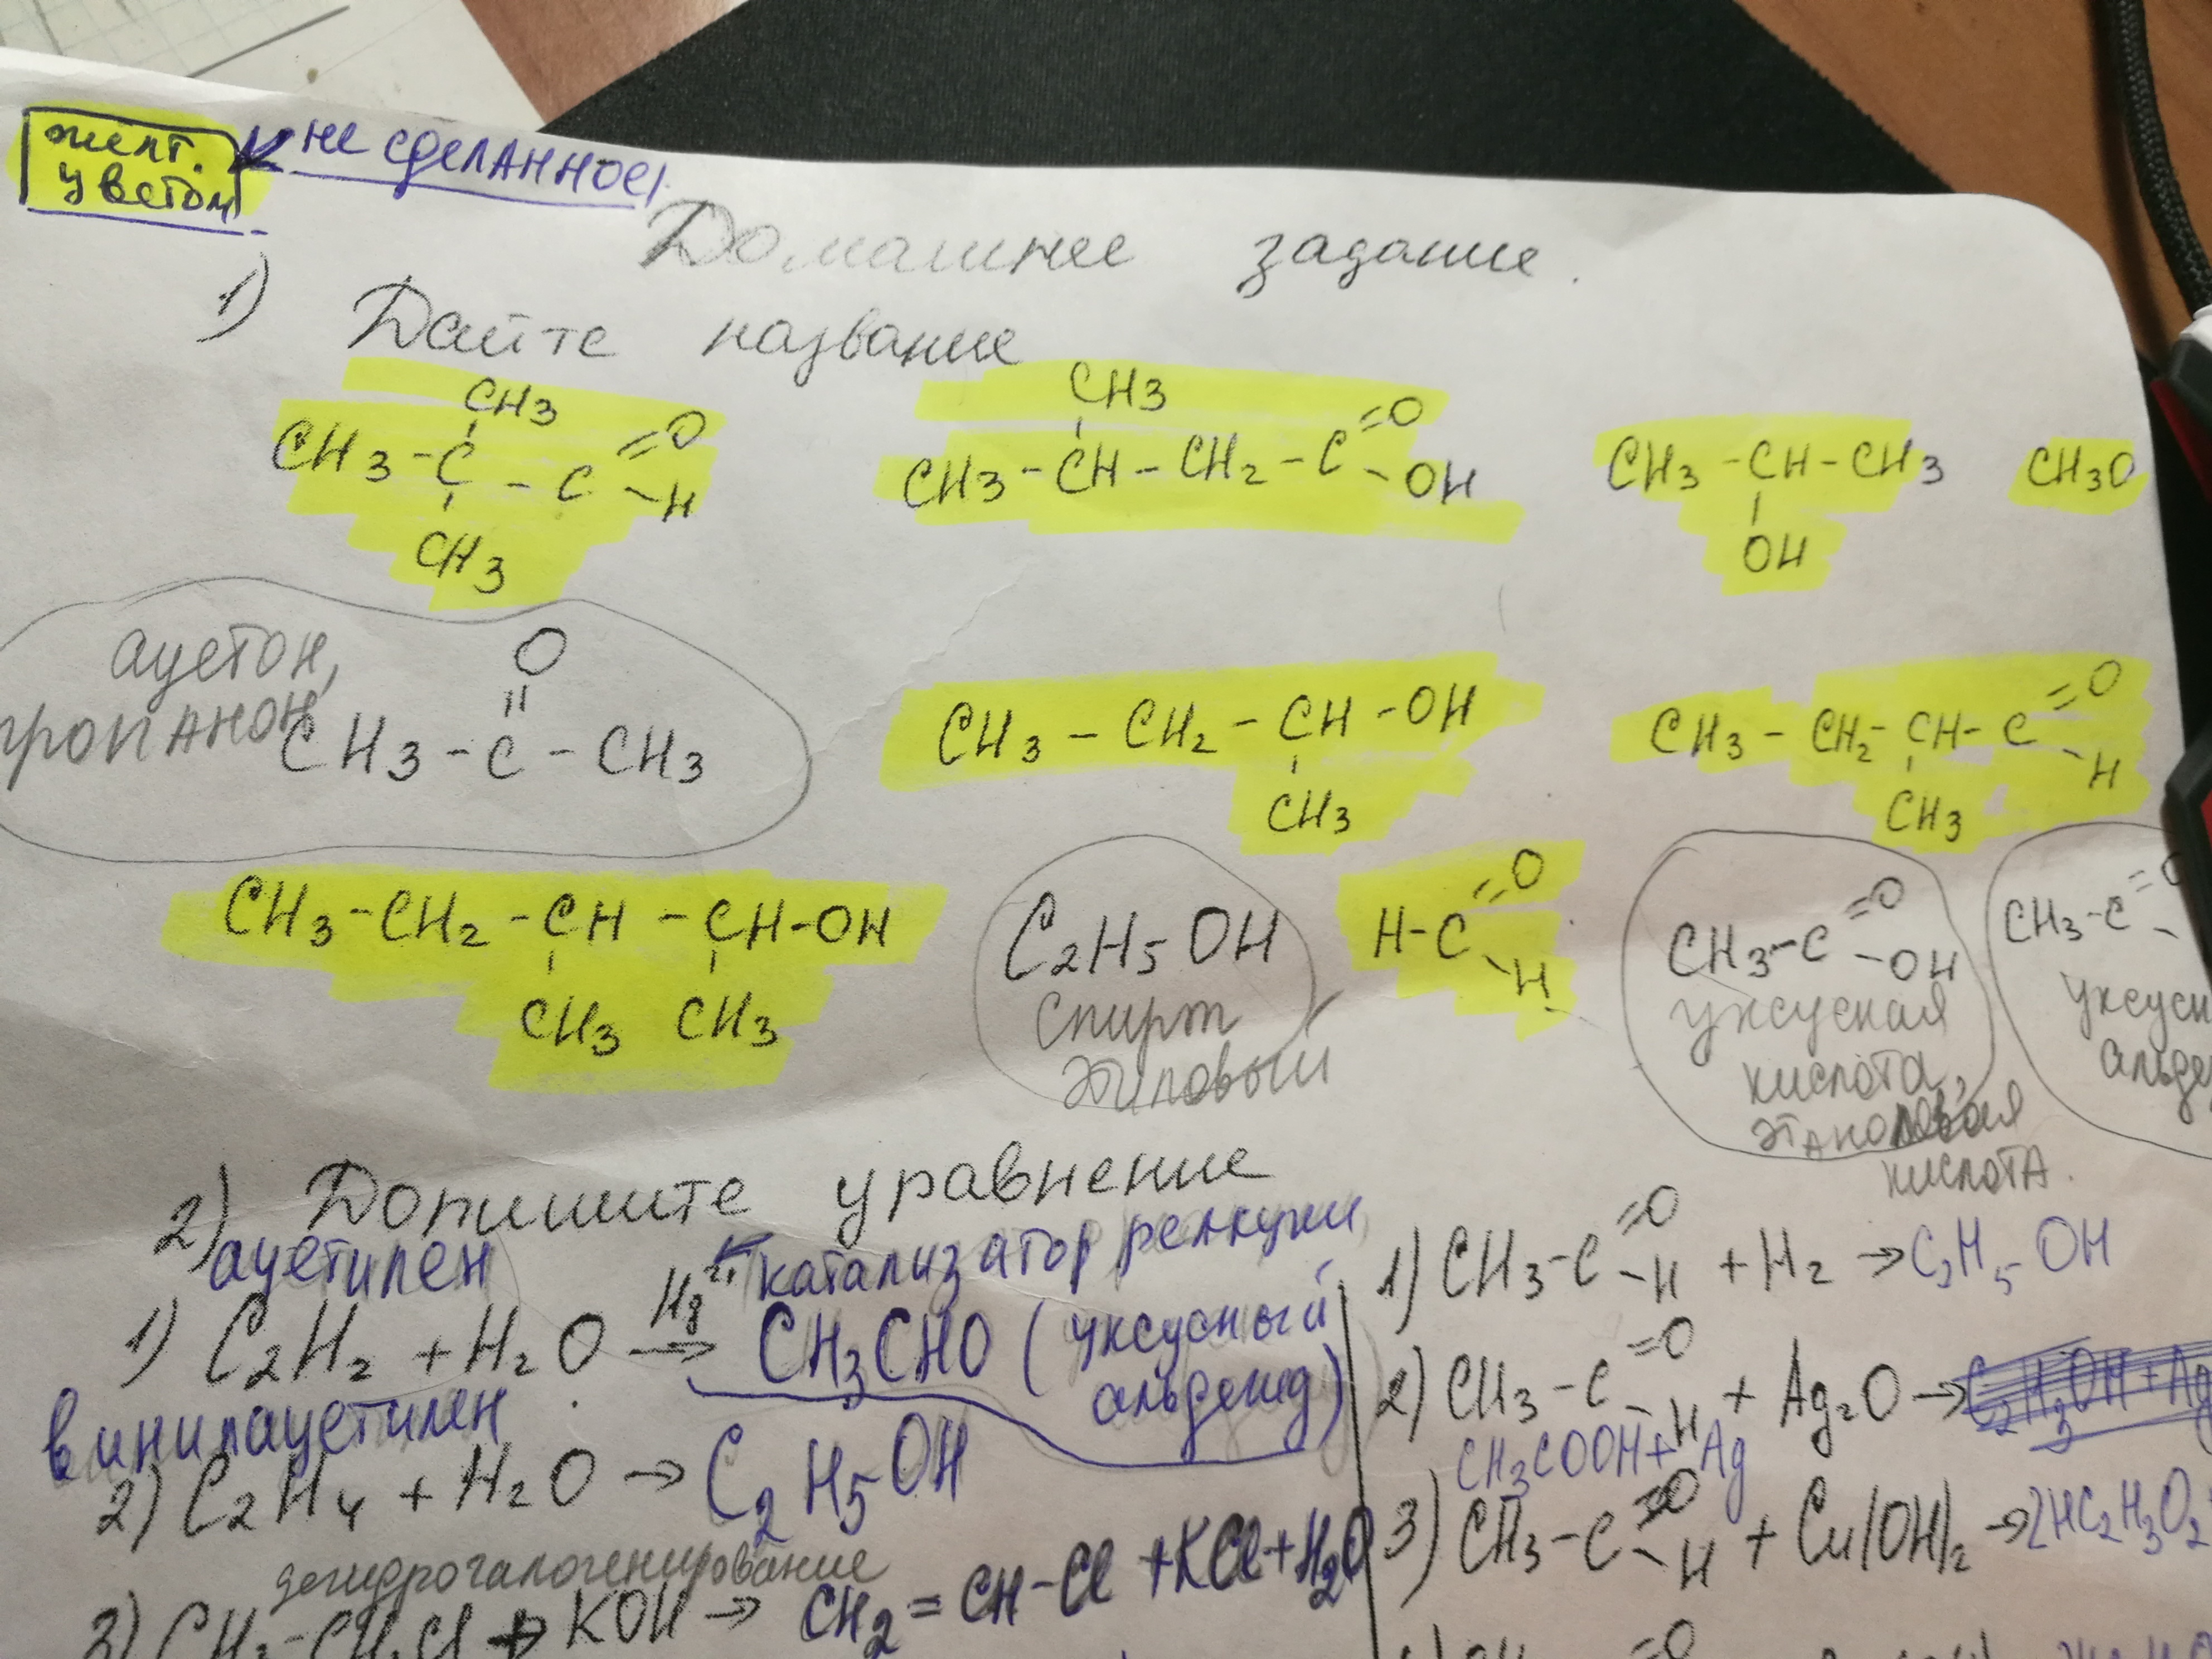 желт. ← не сделанное!
цветом
Домашнее задание.
1) Дайте название
CH3 CH3
CH3 - C - C =O - H CH3 - CH - CH2 - C =O - OH CH3 - CH - CH3 CH3O
CH3 OH
ацетон, O
пропанон CH3 - C - CH3 CH3 - CH2 - CH - OH CH3 - CH2 - CH - C =O - H
CH3 CH3
CH3 - CH2 - CH - CH - OH C2H5OH H - C =O - H CH3 - C =O - OH CH3 - C =O
CH3 CH3 спирт уксусная
этиловый кислота,
кислота.
2) Допишите уравнение
ацетилен Hg2+ ← катализатор реакции
1) C2H2 + H2O → CH3CHO (уксусный
альдегид)
винилацетилен
2) C2H4 + H2O → C2H5OH
дегидрогалогенирование
KOH → CH2 = CH - Cl + KCl + H2O
1) CH3 - C =O - H + H2 → C2H5OH
2) CH3 - C =O - H + Ag2O → C2H3OH + Ag
CH3COOH + Ag
3) CH3 - C =O - H + Cu(OH)2 → 2HC2H3O2